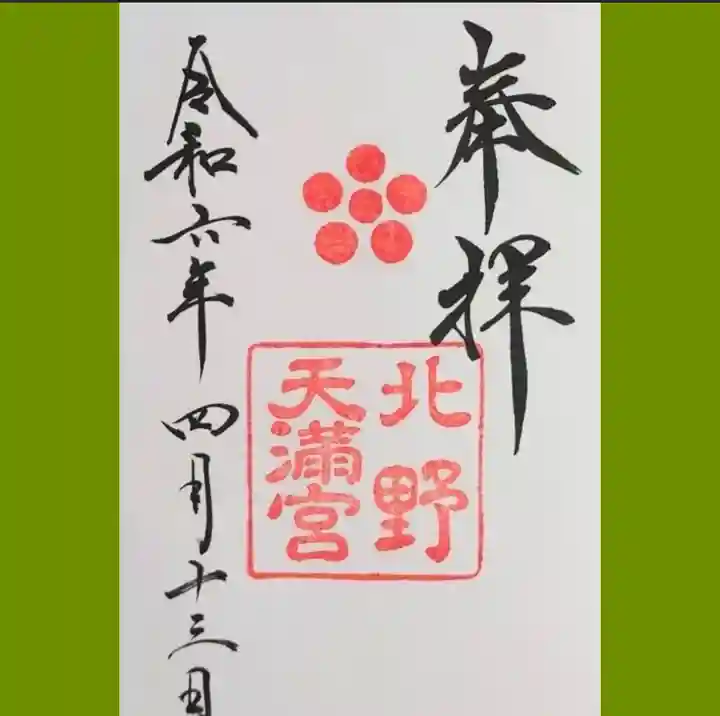 奉拝
北野
天満宮
令和六年四月十三日